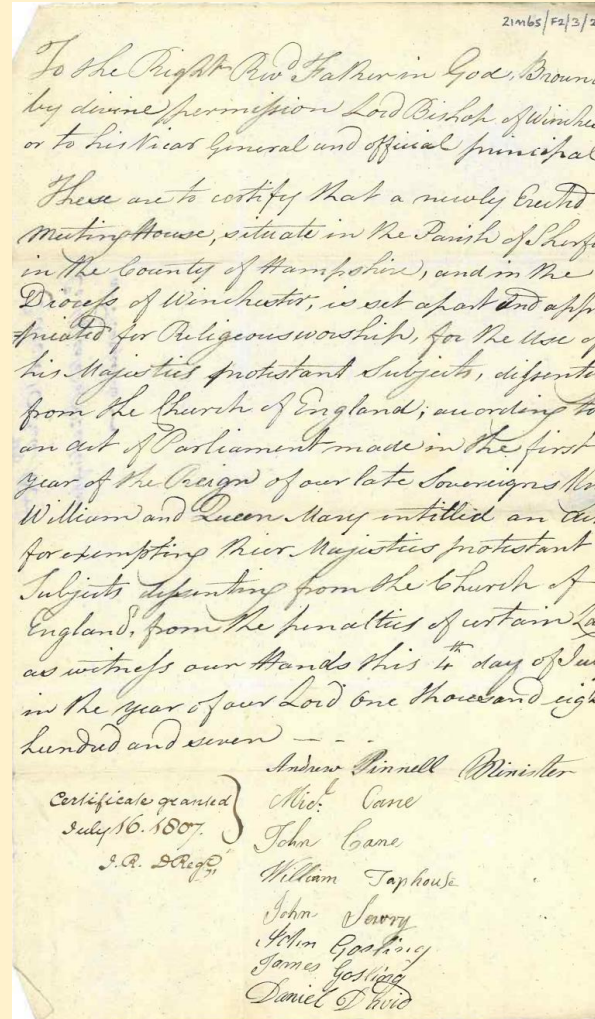 21M65/F2/3/2
To the Right Revd Father in God, Brown
by divine permission Lord Bishop of Winche
or to his Vicar General and official principal
These are to certify that a newly Erected
Meeting House, situate in the Parish of Sherfi
in the County of Hampshire, and in the
Diocess of Winchester, is set apart and appro
=priated for Religeous worship, for the Use of
his Majesties protestant Subjects, dissenti
from the Church of England; according to
an act of Parliament made in the first
year of the Reign of our late Sovereigns
William and Queen Mary intitled an Act
for exempting thier Majesties protestant
Subjects dissenting from the Church of
England, from the penalties of certain La
as witness our Hands this 4th day of
in the year of our Lord One thousand eigh
hundred and seven - - -
Andrew Pinnell Minister
Certificate granted
July 16. 1807.
J.R. DRegr
Micl Cane
John Cane
William Taphouse
John
John Gosling
James Gosling
Daniel David